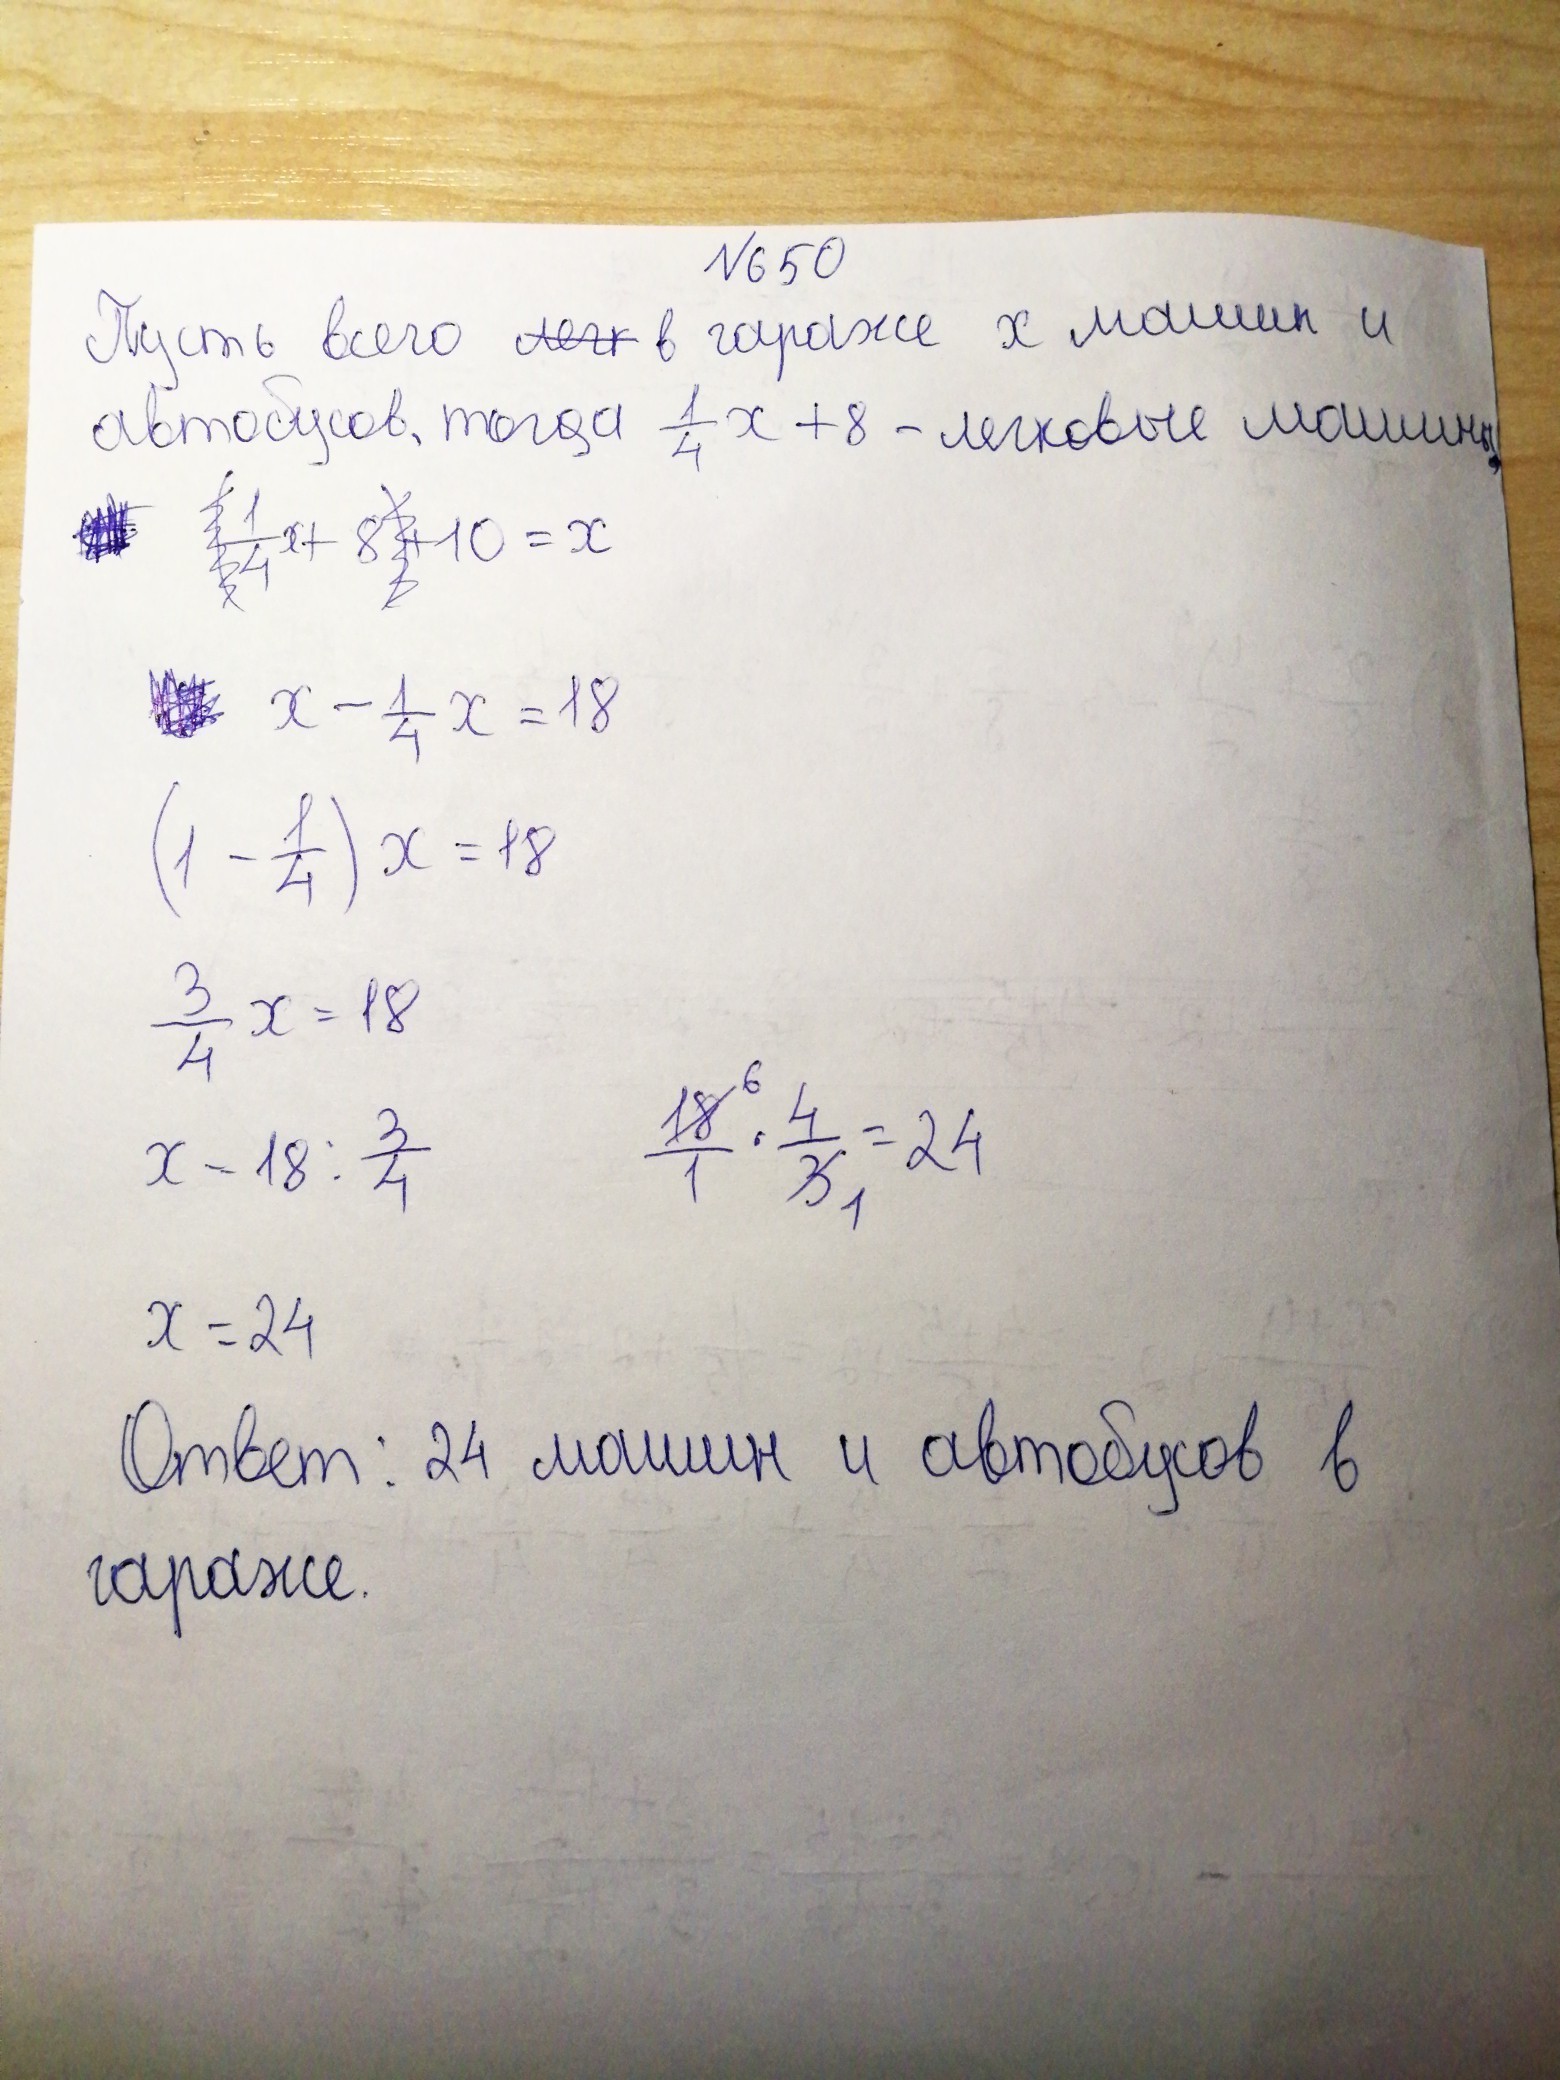 №650
Пусть всего легк в гараже x машин и
автобусов, тогда 1/4 x + 8 - легковые машины,
1/4 x + 8 + 10 = x
x - 1/4 x = 18
(1 - 1/4) x = 18
3/4 x = 18
x - 18 : 3/4    18/1 6 · 4/3 1 = 24
x = 24
Ответ: 24 машин и автобусов в
гараже.